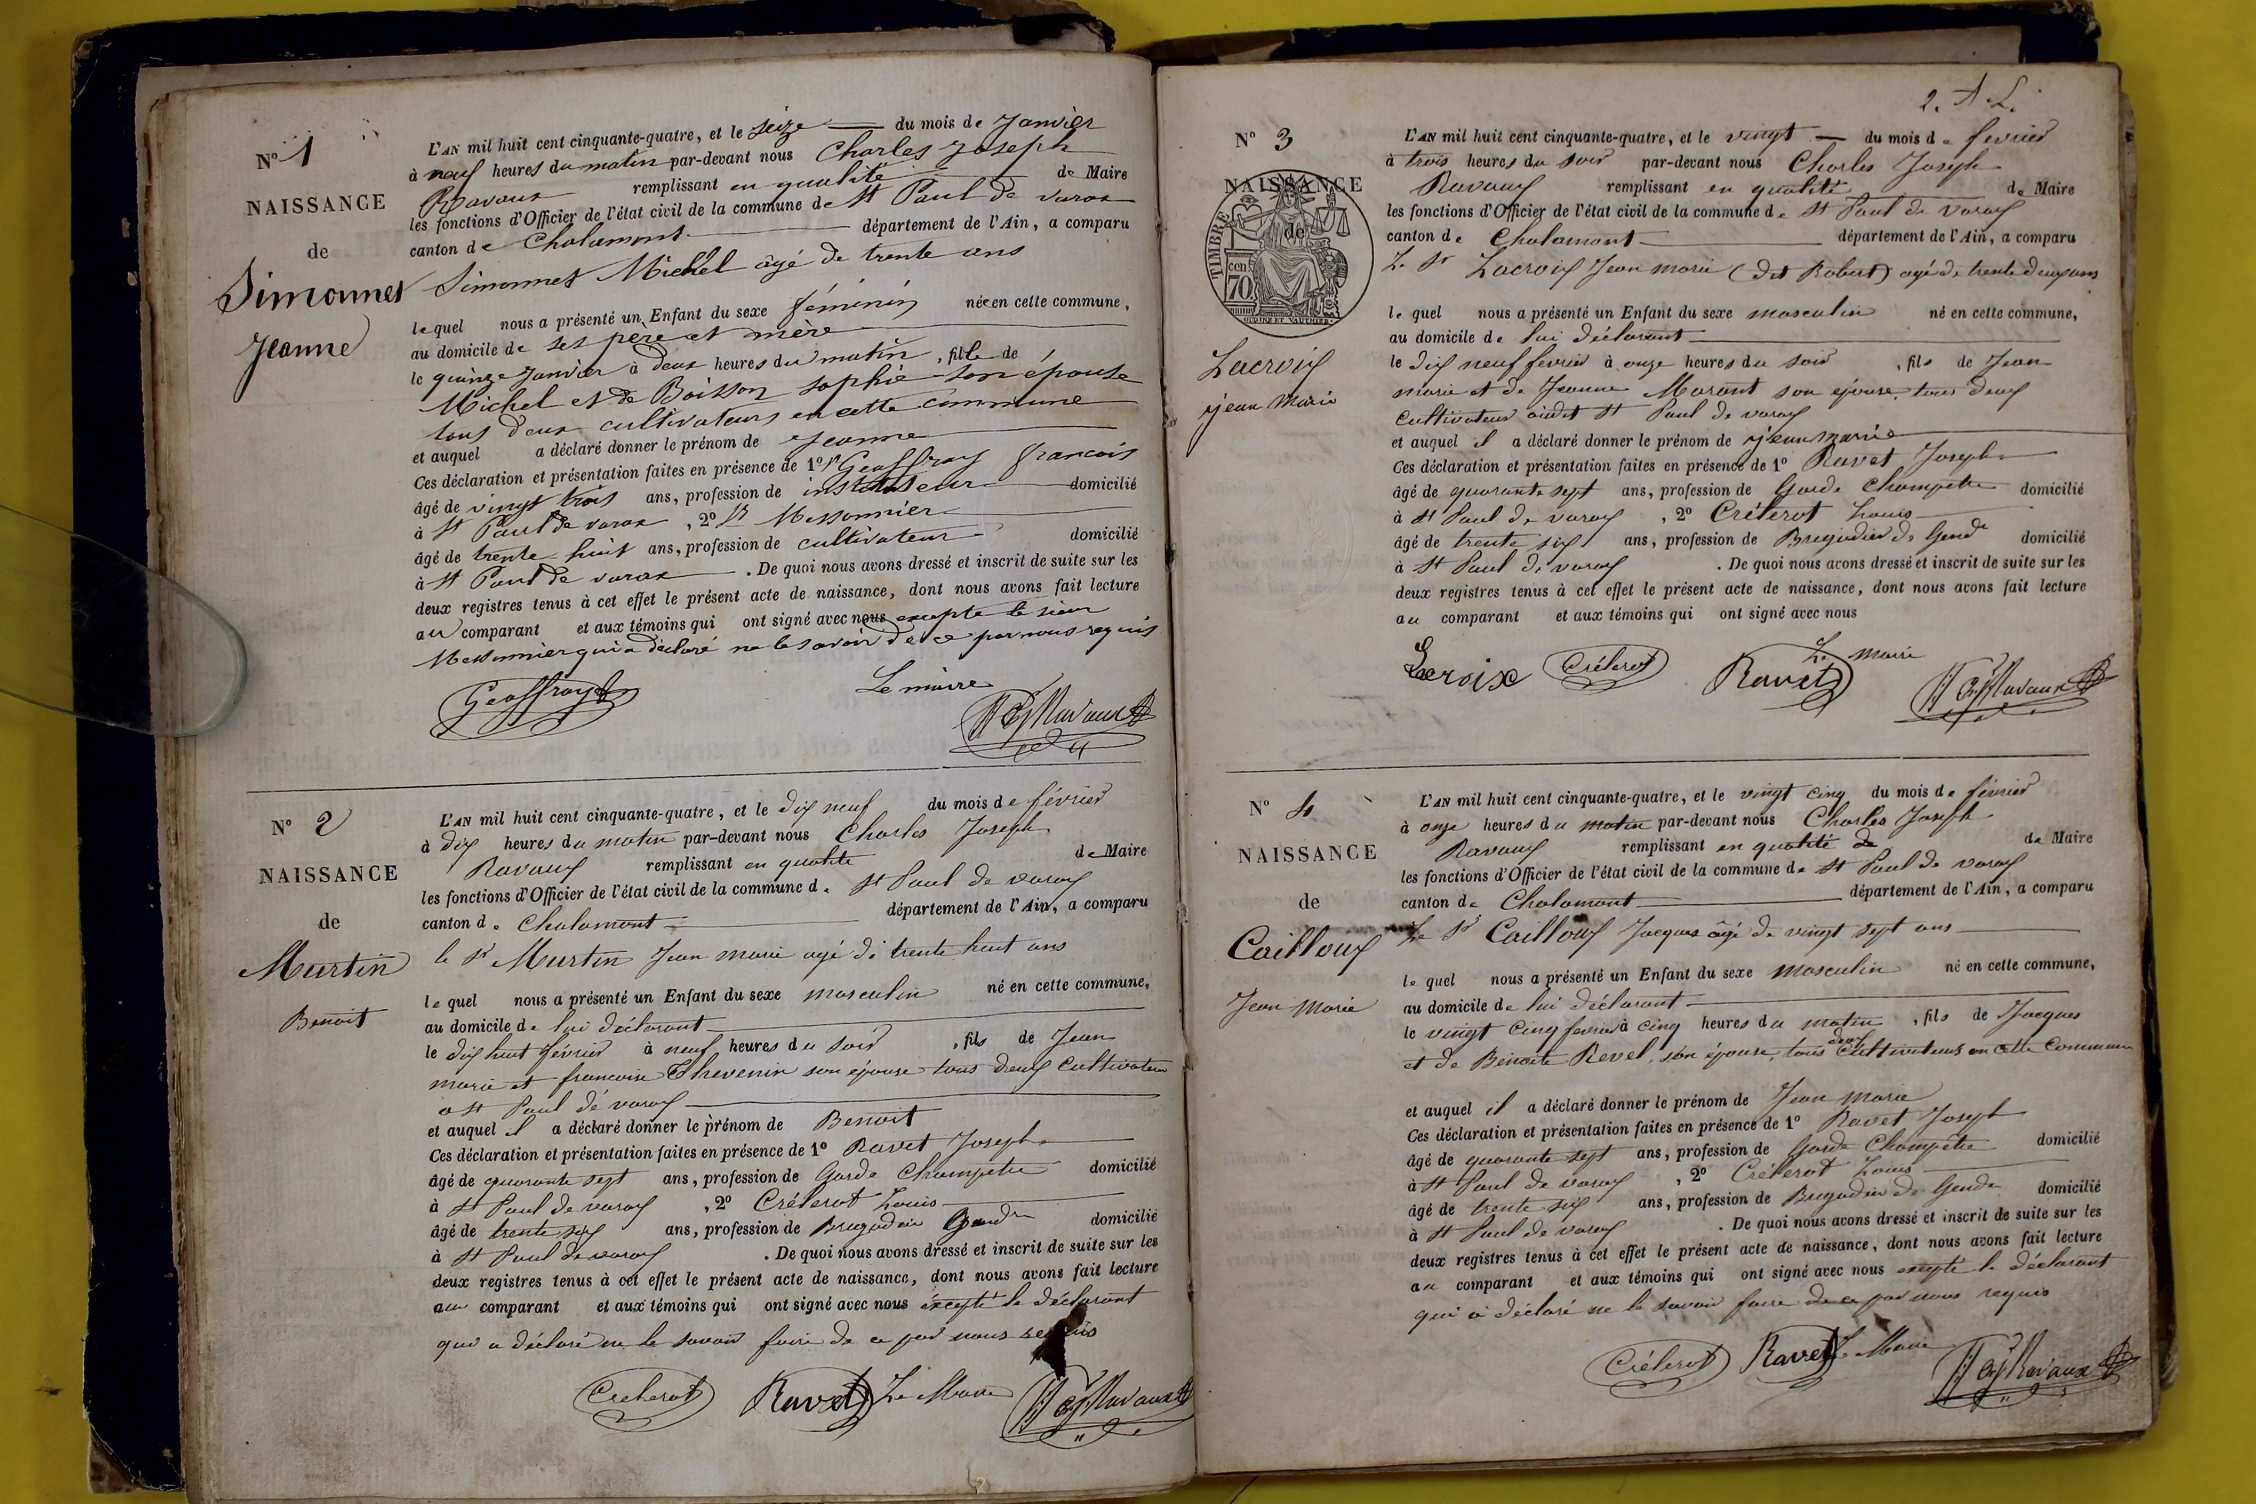 N° 1
NAISSANCE
de
Simonnet
Jeanne
L'AN mil huit cent cinquante-quatre, et le seize du mois de Janvier
à neuf heures du matin par-devant nous Charles Joseph
Ravaux remplissant en qualité de Maire
les fonctions d'Officier de l'état civil de la commune de St Paul de varax
canton de Chalamont département de l'Ain, a comparu
Simonnet Michel âgé de trente ans
lequel nous a présenté un Enfant du sexe féminin née en cette commune,
au domicile de ses père et mère
le quinze Janvier à deux heures du matin, fille de
Michel et de Boisson sophie son épouse
tous deux cultivateurs en cette commune
et auquel a déclaré donner le prénom de Jeanne
Ces déclaration et présentation faites en présence de 1° Sr Geoffray francois
âgé de vingt trois ans, profession de instituteur domicilié
à St Paul de varax, 2° Sr Messonnier
âgé de trente huit ans, profession de cultivateur domicilié
à St Paul de varax. De quoi nous avons dressé et inscrit de suite sur les
deux registres tenus à cet effet le présent acte de naissance, dont nous avons fait lecture
au comparant et aux témoins qui ont signé avec nous excepte le sieur
Messonnier qui a déclaré ne le savoir de ce par nous requis
Geoffray Le maire
Ravaux
N° 2
NAISSANCE
de
Martin
Benoit
L'AN mil huit cent cinquante-quatre, et le dix neuf du mois de février
à dix heures du matin par-devant nous Charles Joseph
Ravaux remplissant en qualité de Maire
les fonctions d'Officier de l'état civil de la commune de St Paul de varax
canton de Chalamont département de l'Ain, a comparu
le Sr Martin Jean marie agé de trente huit ans
lequel nous a présenté un Enfant du sexe masculin né en cette commune,
au domicile de lui déclarant
le dix huit février à neuf heures du soir, fils de Jean
marie et francoise Thevenin son épouse tous deux cultivateurs
a St Paul de varax
et auquel il a déclaré donner le prénom de Benoit
Ces déclaration et présentation faites en présence de 1° Ravet Joseph
âgé de quarante sept ans, profession de Garde Champetre domicilié
à St Paul de varax, 2° Créterot Louis
âgé de trente six ans, profession de Brigadier Gendre domicilié
à St Paul de varax. De quoi nous avons dressé et inscrit de suite sur les
deux registres tenus à cet effet le présent acte de naissance, dont nous avons fait lecture
au comparant et aux témoins qui ont signé avec nous excepté le déclarant
qui a déclaré ne le savoir faire de ce par nous requis
Créterot Ravet Le Maire Ravaux
2. A. L.
N° 3
NAISSANCE
de
TIMBRE
cen. 70
Lacroix
jean Marie
L'AN mil huit cent cinquante-quatre, et le vingt du mois de fevrier
à trois heures du soir par-devant nous Charles Joseph
Ravaux remplissant en qualité de Maire
les fonctions d'Officier de l'état civil de la commune de St Paul de varax
canton de Chalamont département de l'Ain, a comparu
Le Sr Lacroix Jean marie (dit Robert) agé de trente deux ans
lequel nous a présenté un Enfant du sexe masculin né en cette commune,
au domicile de lui déclarant
le dix neuf fevrier à onze heures du soir, fils de Jean
marie et de Jeanne Morant son épouse, tous deux
cultivateurs audit St Paul de varax
et auquel il a déclaré donner le prénom de jean marie
Ces déclaration et présentation faites en présence de 1° Ravet Joseph
âgé de quarante sept ans, profession de Garde Champetre domicilié
à St Paul de varax, 2° Créterot Louis
âgé de trente six ans, profession de Brigadier de Gend domicilié
à St Paul de varax. De quoi nous avons dressé et inscrit de suite sur les
deux registres tenus à cet effet le présent acte de naissance, dont nous avons fait lecture
au comparant et aux témoins qui ont signé avec nous
Le maire
Lacroix Créterot Ravet Ravaux
N° 4
NAISSANCE
de
Cailloux
Jean Marie
L'AN mil huit cent cinquante-quatre, et le vingt cinq du mois de février
à onze heures du matin par-devant nous Charles Joseph
Ravaux remplissant en qualité de de Maire
les fonctions d'Officier de l'état civil de la commune de St Paul de varax
canton de Chalamont département de l'Ain, a comparu
Le Sr Cailloux Jacques âgé de vingt sept ans
lequel nous a présenté un Enfant du sexe masculin né en cette commune,
au domicile de lui déclarant
le vingt cinq fevrier à cinq heures du matin, fils de Jacques
et de Benoite Revel, son épouse, tous deux cultivateurs en cette commune
et auquel il a déclaré donner le prénom de Jean Marie
Ces déclaration et présentation faites en présence de 1° Ravet Joseph
âgé de quarante sept ans, profession de Garde Champêtre domicilié
à St Paul de varax, 2° Créterot Louis
âgé de trente six ans, profession de Brigadier de Gende domicilié
à St Paul de varax. De quoi nous avons dressé et inscrit de suite sur les
deux registres tenus à cet effet le présent acte de naissance, dont nous avons fait lecture
au comparant et aux témoins qui ont signé avec nous excepté le déclarant
qui a déclaré ne le savoir faire de ce par nous requis
Créterot Ravet Le Maire Ravaux